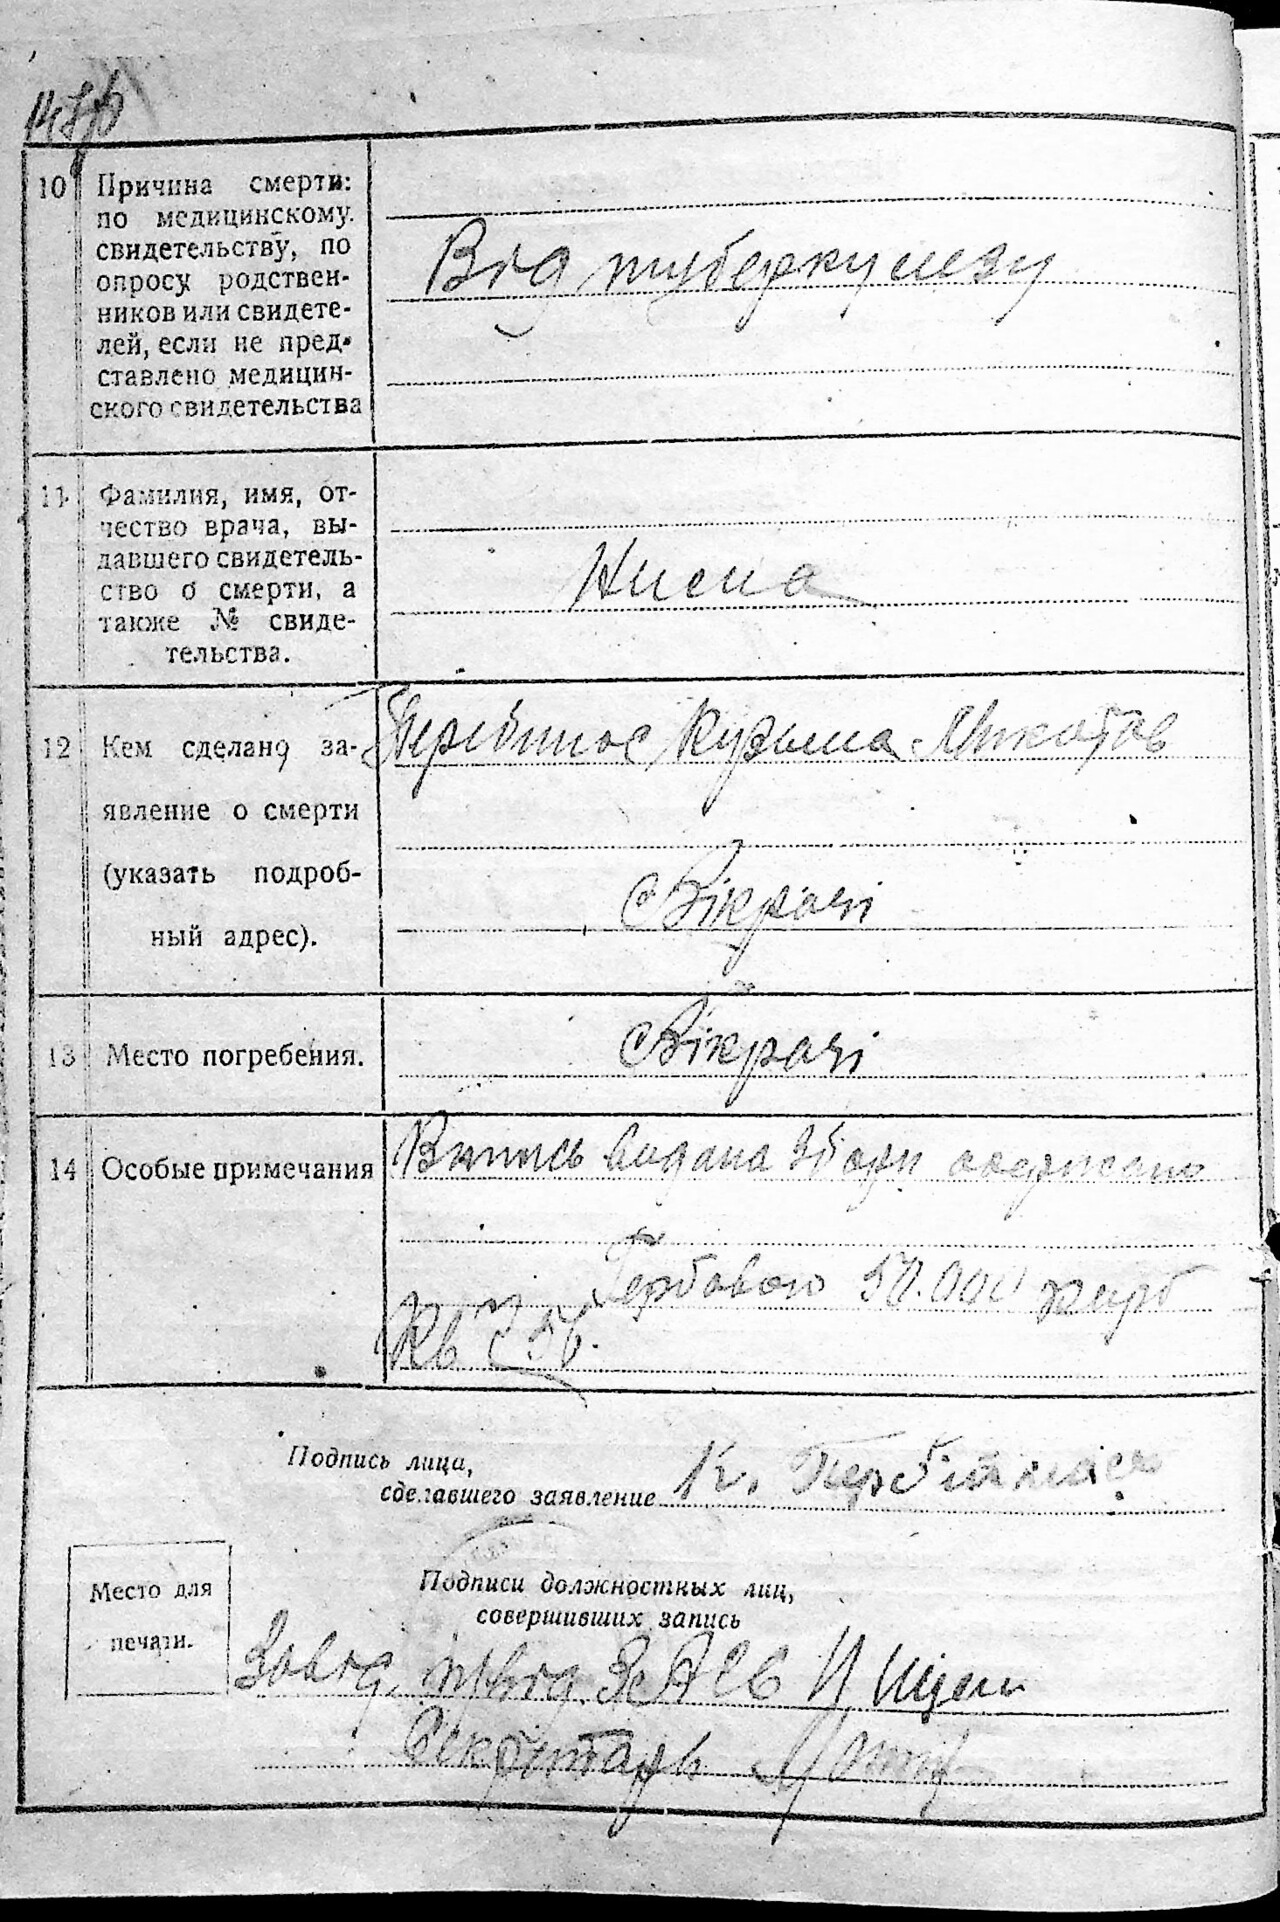 10 Причина смерти:
по медицинскому
свидетельству, по
опросу родствен-
ников или свидете-
лей, если не пред-
ставлено медицин-
ского свидетельства
Від туберкульозу
11 Фамилия, имя, от-
чество врача, вы-
давшего свидетель-
ство о смерти, а
также № свиде-
тельства.
Нема
12 Кем сделано за-
явление о смерти
(указать подроб-
ный адрес).
Кузьма
13 Место погребения.
14 Особые примечания
Випись видана Збори одержано
Гербового 50.000 карб
Кв
Подпись лица,
сделавшего заявление К.
Место для
печати.
Подписи должностных лиц,
совершивших запись
Завід. ЗАГС
Секретарь